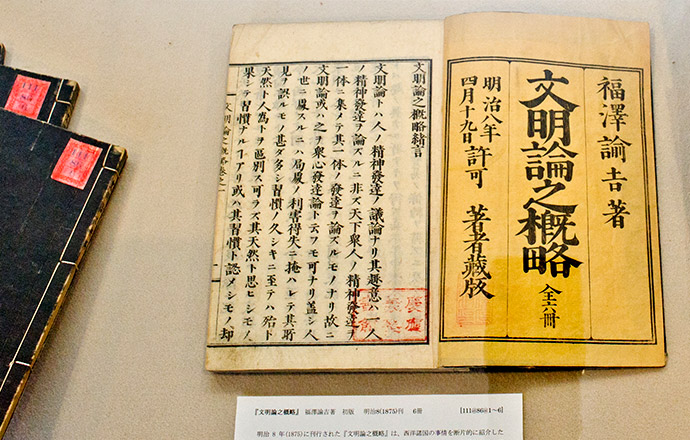 福澤諭吉著
文明論之概略 全六冊
明治八年
四月十九日許可 著者藏版
文明論之概略緒言
文明論トハ人ノ精神發達ノ議論ナリ其趣意ハ一人
ノ精神發達ヲ論ズルニ非ズ天下衆人ノ精神發達ヲ
一体ニ集メテ其一体ノ發達ヲ論ズルモノナリ故ニ
文明論或ハ之ヲ衆心發達論ト云フモ可ナリ蓋シ人
ノ世ニ處スルニハ局處ノ利害得失ニ掩ハレテ其所
見ヲ誤ルモノ甚ダ多シ習慣ノ久シキニ至テハ殆ト
天然ト人為トヲ區別ス可ラズ其天然ト思ヒシモノ
果シテ習慣ナルヿアリ或ハ其習慣ト認メシモノ却
文明論之概略卷之一
『文明論之概略』 福澤諭吉著 初版 明治8(1875)刊 6冊 [111@86@1～6]
明治 8 年(1875)に刊行された『文明論之概略』は、西洋諸国の事情を断片的に紹介した